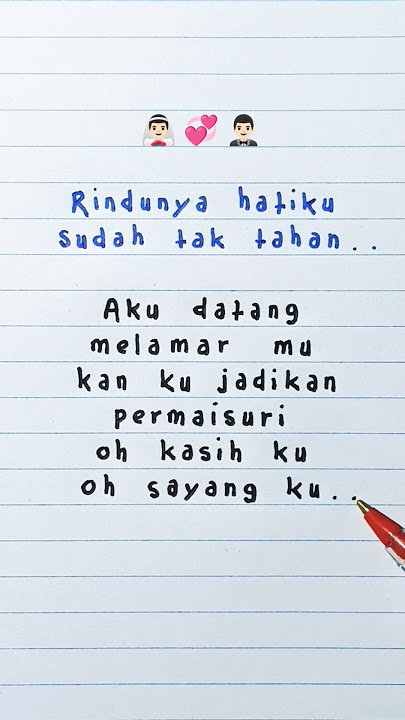 Rindunya hatiku
sudah tak tahan..
Aku datang
melamar mu
kan ku jadikan
permaisuri
oh kasih ku
oh sayang ku..